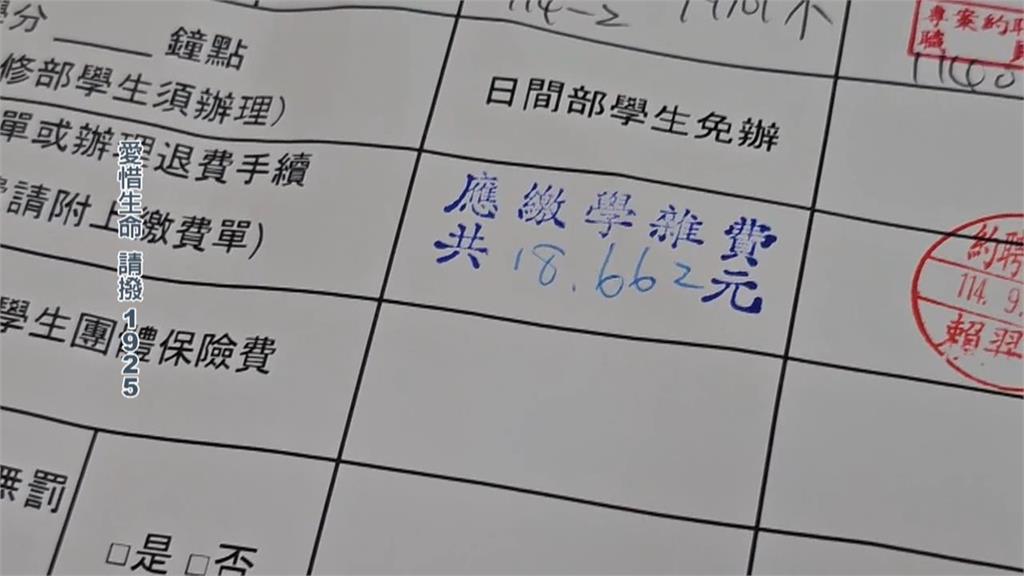 學分 ＿＿＿ 鐘點
修部學生須辦理)
日間部學生免辦
專案約聘
單或辦理退費手續
請附上繳費單)
應繳學雜費
共 18.662元
約聘
114.9.
賴羿
學生團體保險費
無罰
□是 □否
愛惜生命 請撥 1925